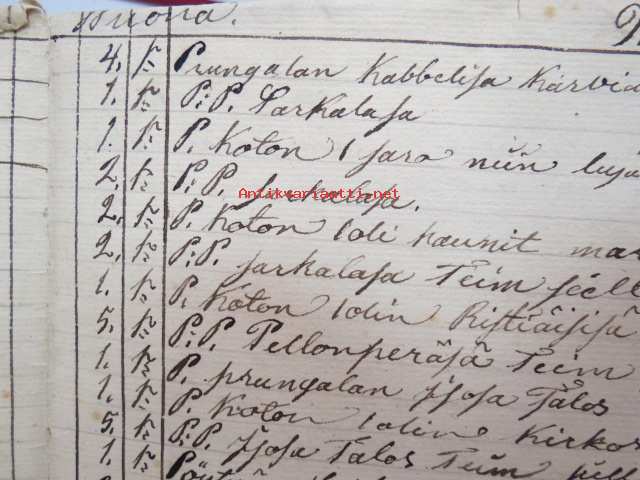 vuona.
4. k: Prungalan Kabbelisa Karvia
1. k: P:P. Sarkalasa
1. k: P. Koton
2. k: P:P. Sarkalasa.
Antikvariantti.net
2. k: P. Koton / oli kaunit
2. k: P:P. Sarkalasa Teim
1. k: P. Koton / olin Ristiäisisä
5. k: P:P. Pellonperäsä Teim
1. k: P. prungalan jsosa Talos
1. k: P. Koton / olin Kirkos
5. k: P:P. jsosa Talos Teim
1. k: